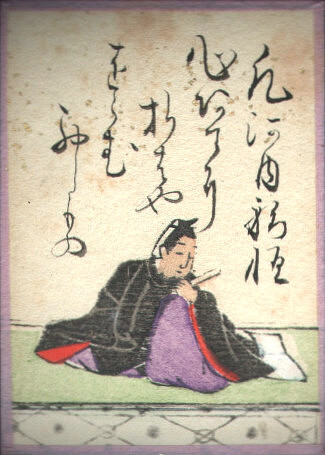 凡河内躬恒
心あてに
おらはや
をらむ
初しもの